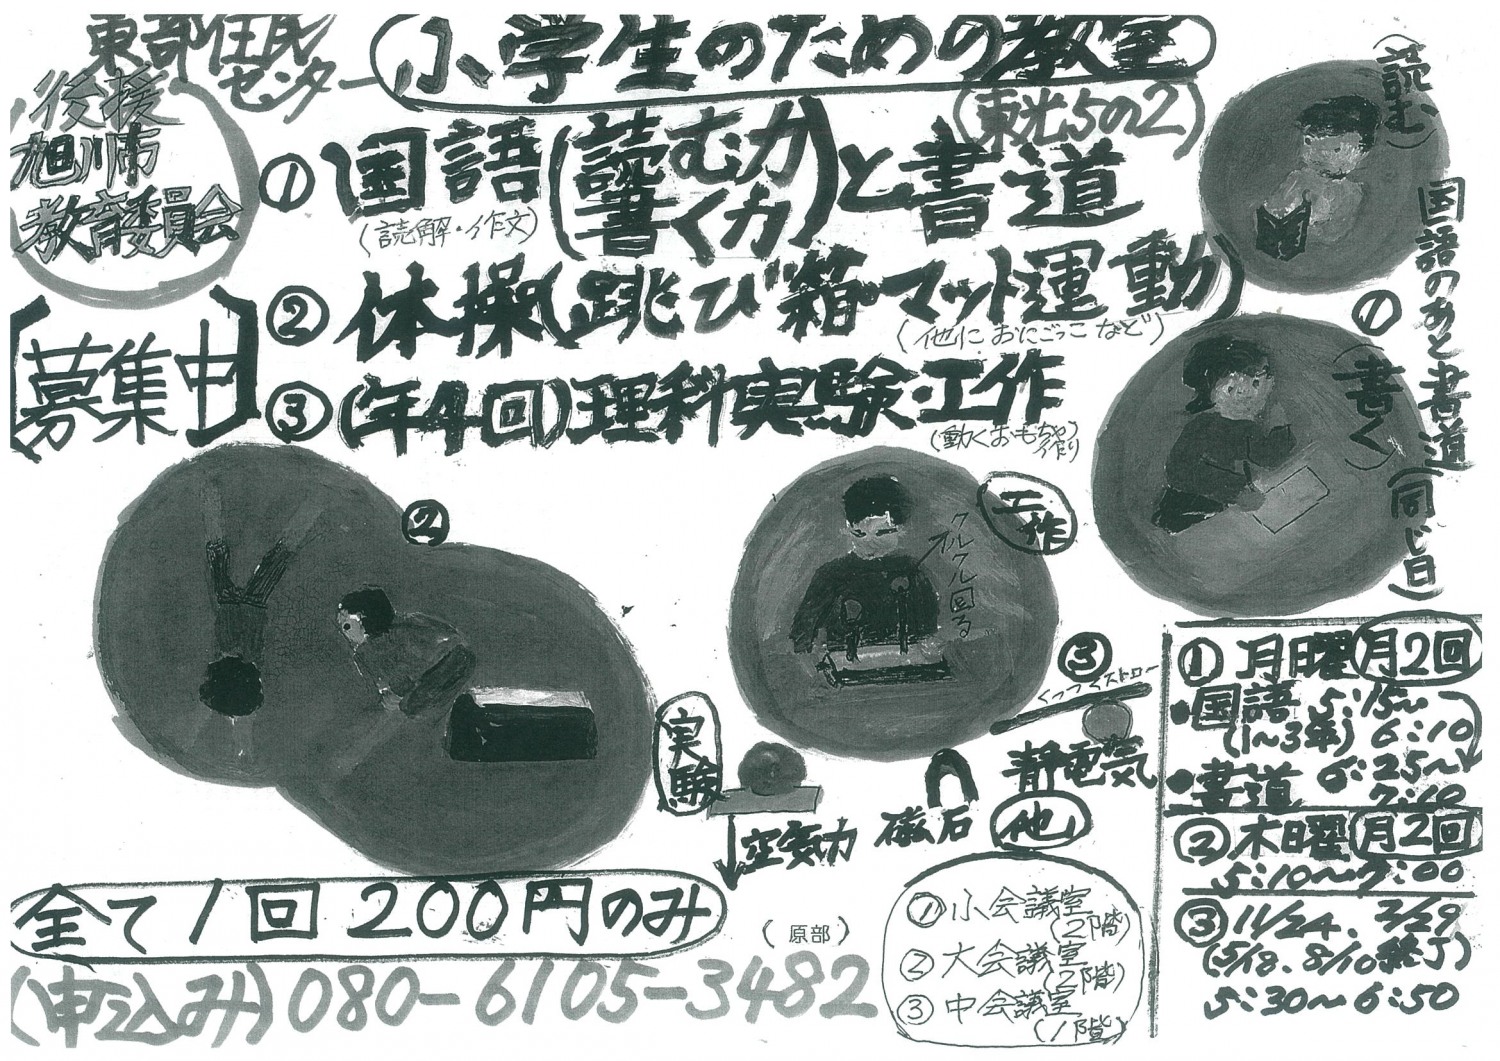 東部住民
センター
小学生のための教室
(東光5の2)
後援
旭川市
教育委員会
① 国語(読む力 書く力)と書道
(読解・作文)
② 体操(跳び箱・マット運動)
(他におにごっこなど)
[募集中]
③ (年4回)理科実験・工作
(動くおもちゃ作り)
(読む)
国語のあと書道(同じ日)
①
(書く)
②
工作
クルクル回る
③
くっつくストロー
静電気
実験
空気力
磁石
他
① 月曜日 月2回
・国語 5:15〜
(1〜3年) 6:10
・書道 6:25〜
7:10
② 木曜日 月2回
5:10〜7:00
③ 11/24、3/29
(5/18、8/10終了)
5:30〜6:50
全て1回200円のみ
(原部)
(申込み) 080-6105-3482
① 小会議室
(2階)
② 大会議室
(2階)
③ 中会議室
(1階)